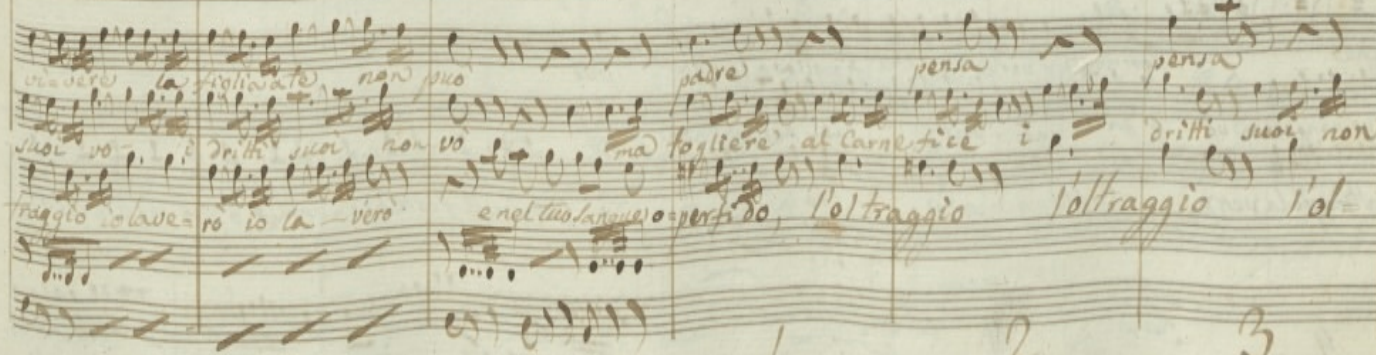 vivere la figlia a te non può padre pensa pensa
suoi vo- i dritti suoi non vò ma togliere al Carnefice i dritti suoi non
traggio io lave=ro io la-verò e nel tuo sangue o perfido, l'oltraggio l'oltraggio l'ol=
1 2 3